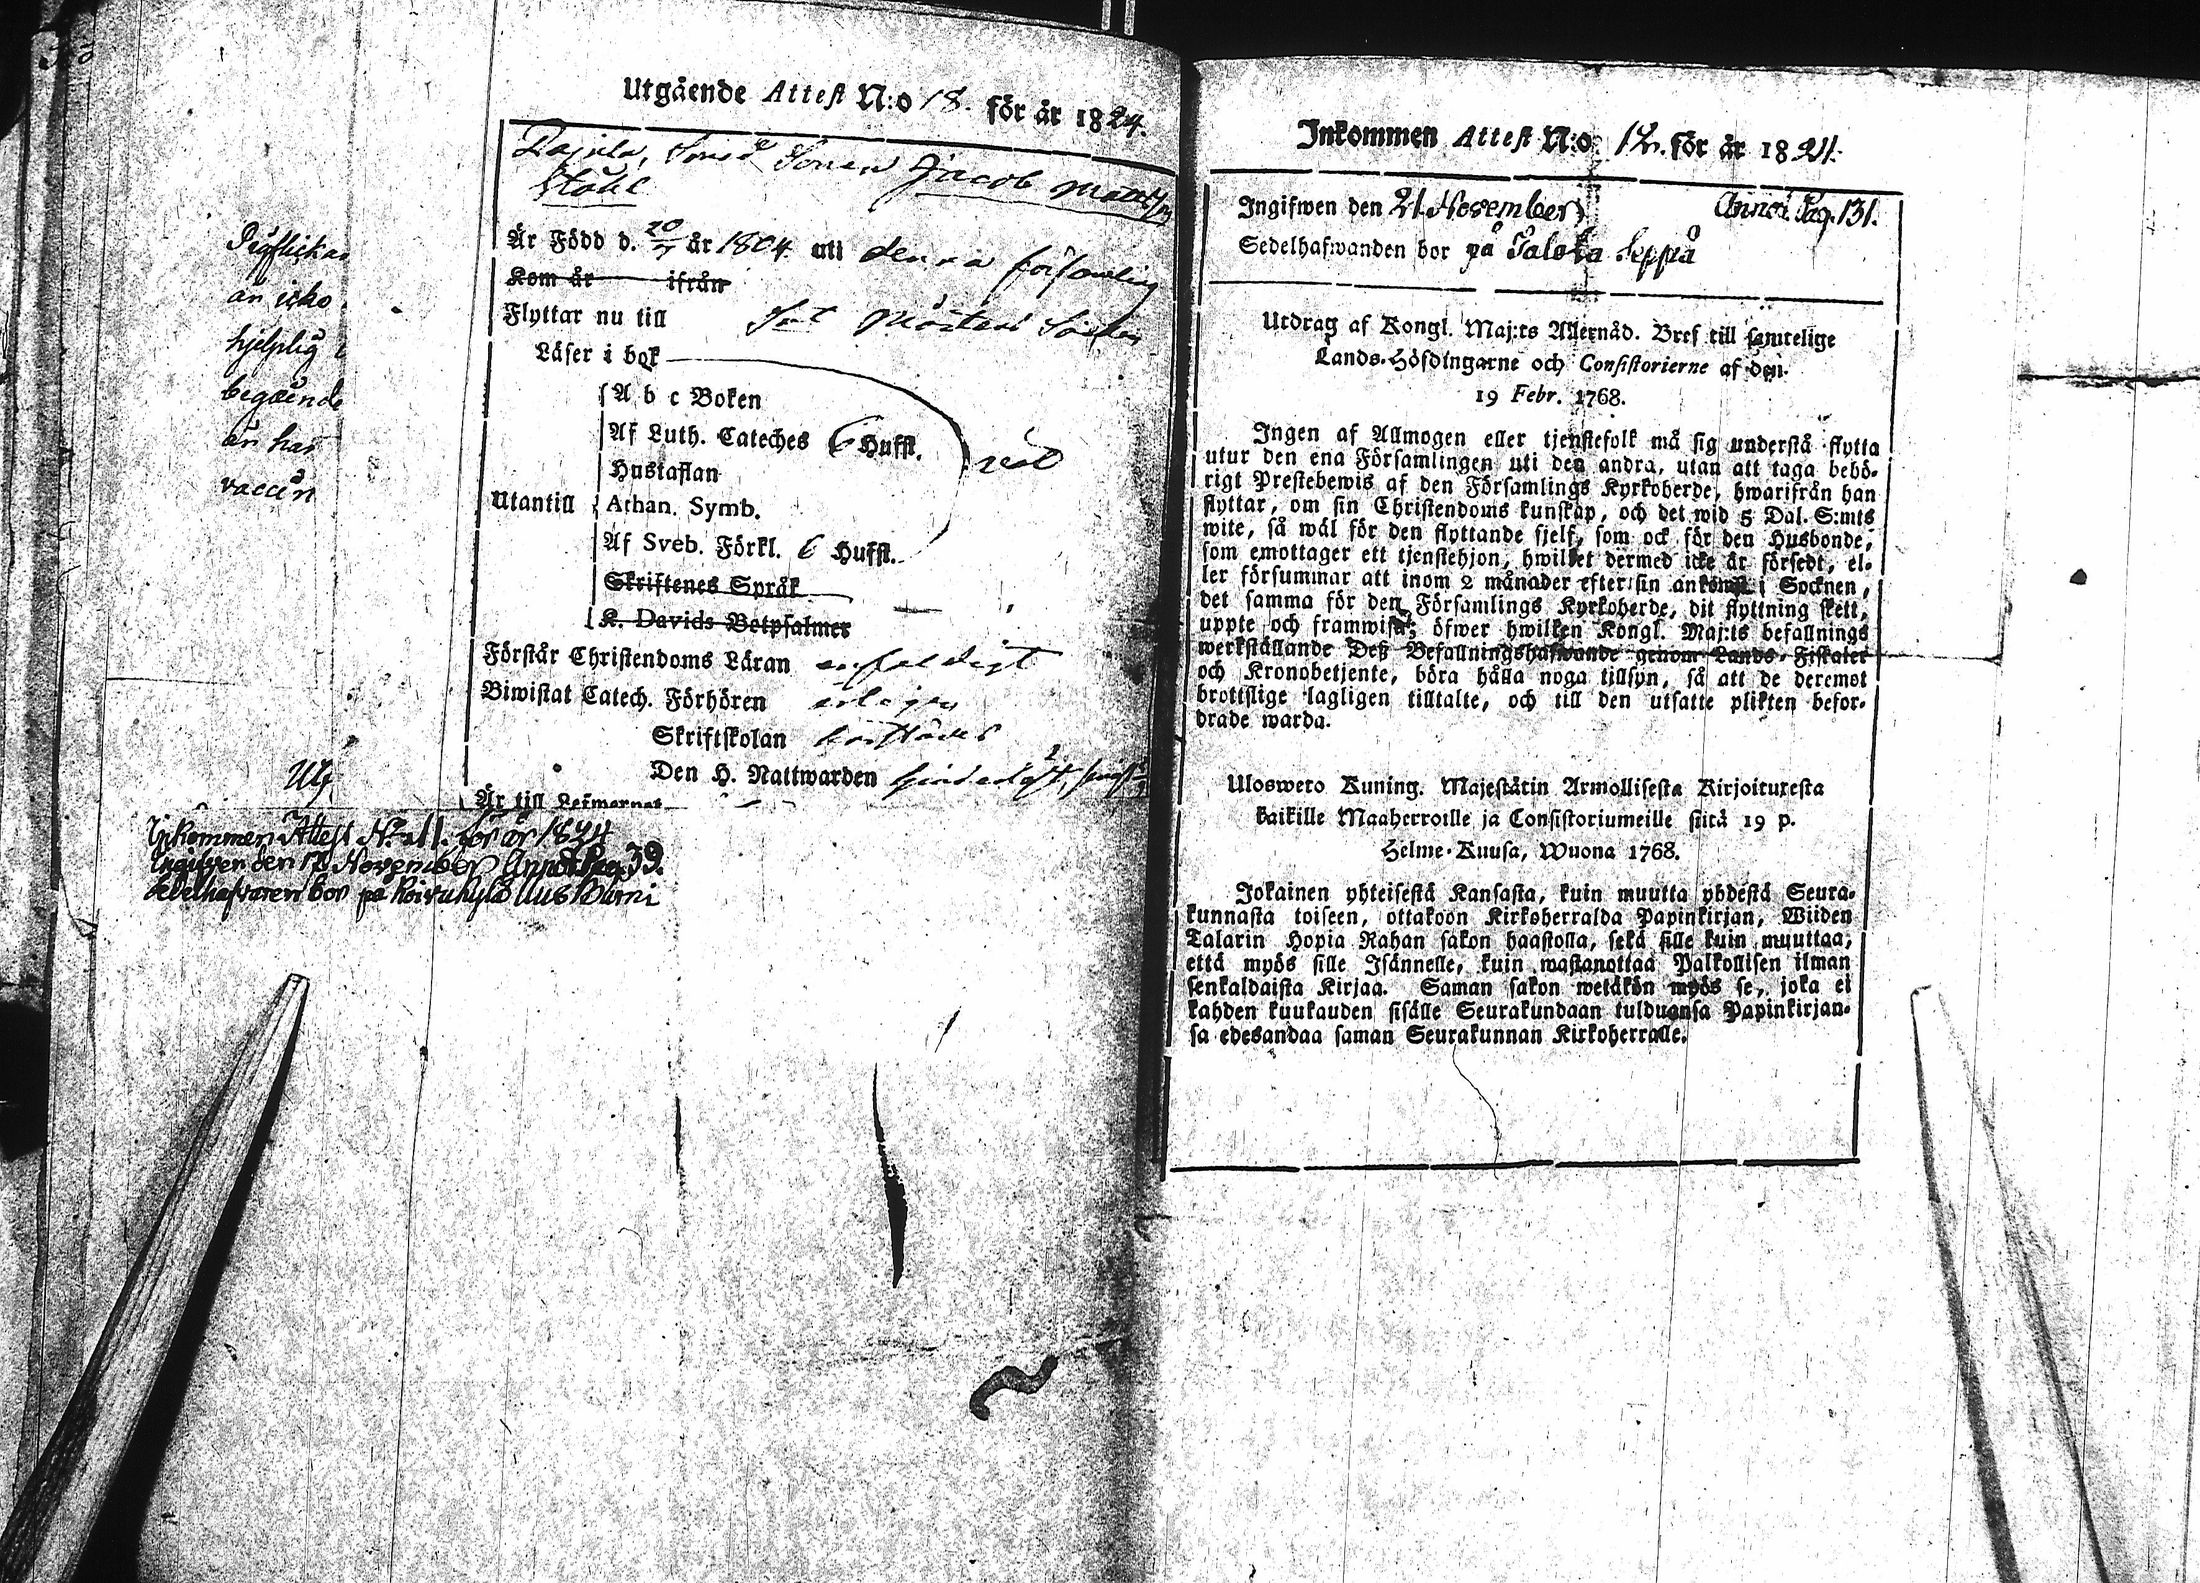 Utgående Attest N:o 18. för år 1824.
Smed Sonen Jacob Matts
Ståhl
Är Född d. 20 år 1804. uti denna församling
Kom år ifrån
Flyttar nu till St Mårtens Socken
Läser i bok
A b c Boken
Af Luth. Cateches 6 Hufst.
Hustaflan
Utantill Athan. Symb.
Af Sveb. Förkl. 6 Hufst.
Skriftenes Språk
K. Davids Botpsalmer
Förstår Christendoms Läran enfaldigt
Biwistat Catech. Förhören årligen
Skriftskolan
Den H. Nattwarden
Är till Lefwernet
än icke
hjelplig
begående
än har
vaccin
Inkommen Attest No 11. för år 1824
Ingifven den 12 November Annot. Pag. 39.
Sedelhafvaren bor på Koivukylä Uus
Inkommen Attest N:o 12. för år 1824.
Ingifwen den 21 November Annot. Pag. 131.
Sedelhafwanden bor på Taloka Seppä
Utdrag af Kongl. Maj:ts Allernåd. Bref till samtelige
Lands-Höfdingarne och Consistorierne af den
19 Febr. 1768.
Ingen af Allmogen eller tjenstefolk må sig understå flytta
utur den ena Församlingen uti den andra, utan att taga behö-
rigt Prestebewis af den Församlings Kyrkoherde, hwarifrån han
flyttar, om sin Christendoms kunskap, och det wid 5 Dal. S:mts
wite, så wäl för den flyttande sjelf, som ock för den Husbonde,
som emottager ett tjenstehjon, hwilket dermed icke är försedt, el-
ler försummar att inom 2 månader efter sin ankomst i Socknen,
det samma för den Församlings Kyrkoherde, dit flyttning skett,
uppte och framwisa; öfwer hwilken Kongl. Maj:ts befallnings
werkställande Deß Befallningshafwande genom Lands-Fiskaler
och Kronobetjente, böra hålla noga tillsyn, så att de deremot
brottslige lagligen tilltalte, och till den utsatte plikten befor-
drade warda.
Ulosweto Kuning. Majestätin Armollisesta Kirjoituxesta
kaikille Maaherroille ja Consistoriumeille siitä 19 p.
Helme-Kuusa, Wuona 1768.
Jokainen yhteisestä Kansasta, kuin muutta yhdestä Seura-
kunnasta toiseen, ottakoon Kirkoherralda Papinkirjan, Wiiden
Talarin Hopia Rahan sakon haastolla, sekä sille kuin muuttaa,
että myös sille Isännelle, kuin wastanottaa Palkollisen ilman
senkaldaista Kirjaa. Saman sakon wetäkön myös se, joka ei
kahden kuukauden sisälle Seurakundaan tulduansa Papinkirjan-
sa edesandaa saman Seurakunnan Kirkoherralle.